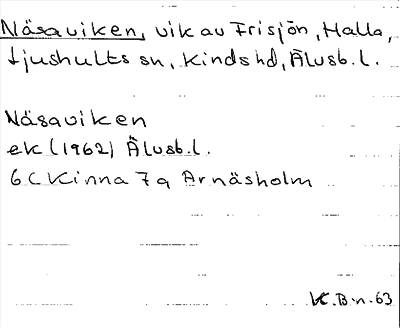 Näsaviken, vik av Frisjön, Halla,
Ljushults sn, Kinds hd, Älvsb. l.
Näsaviken
ek (1962) Älvsb. l.
6C Kinna 7a Arnäsholm
K.B-n. 63